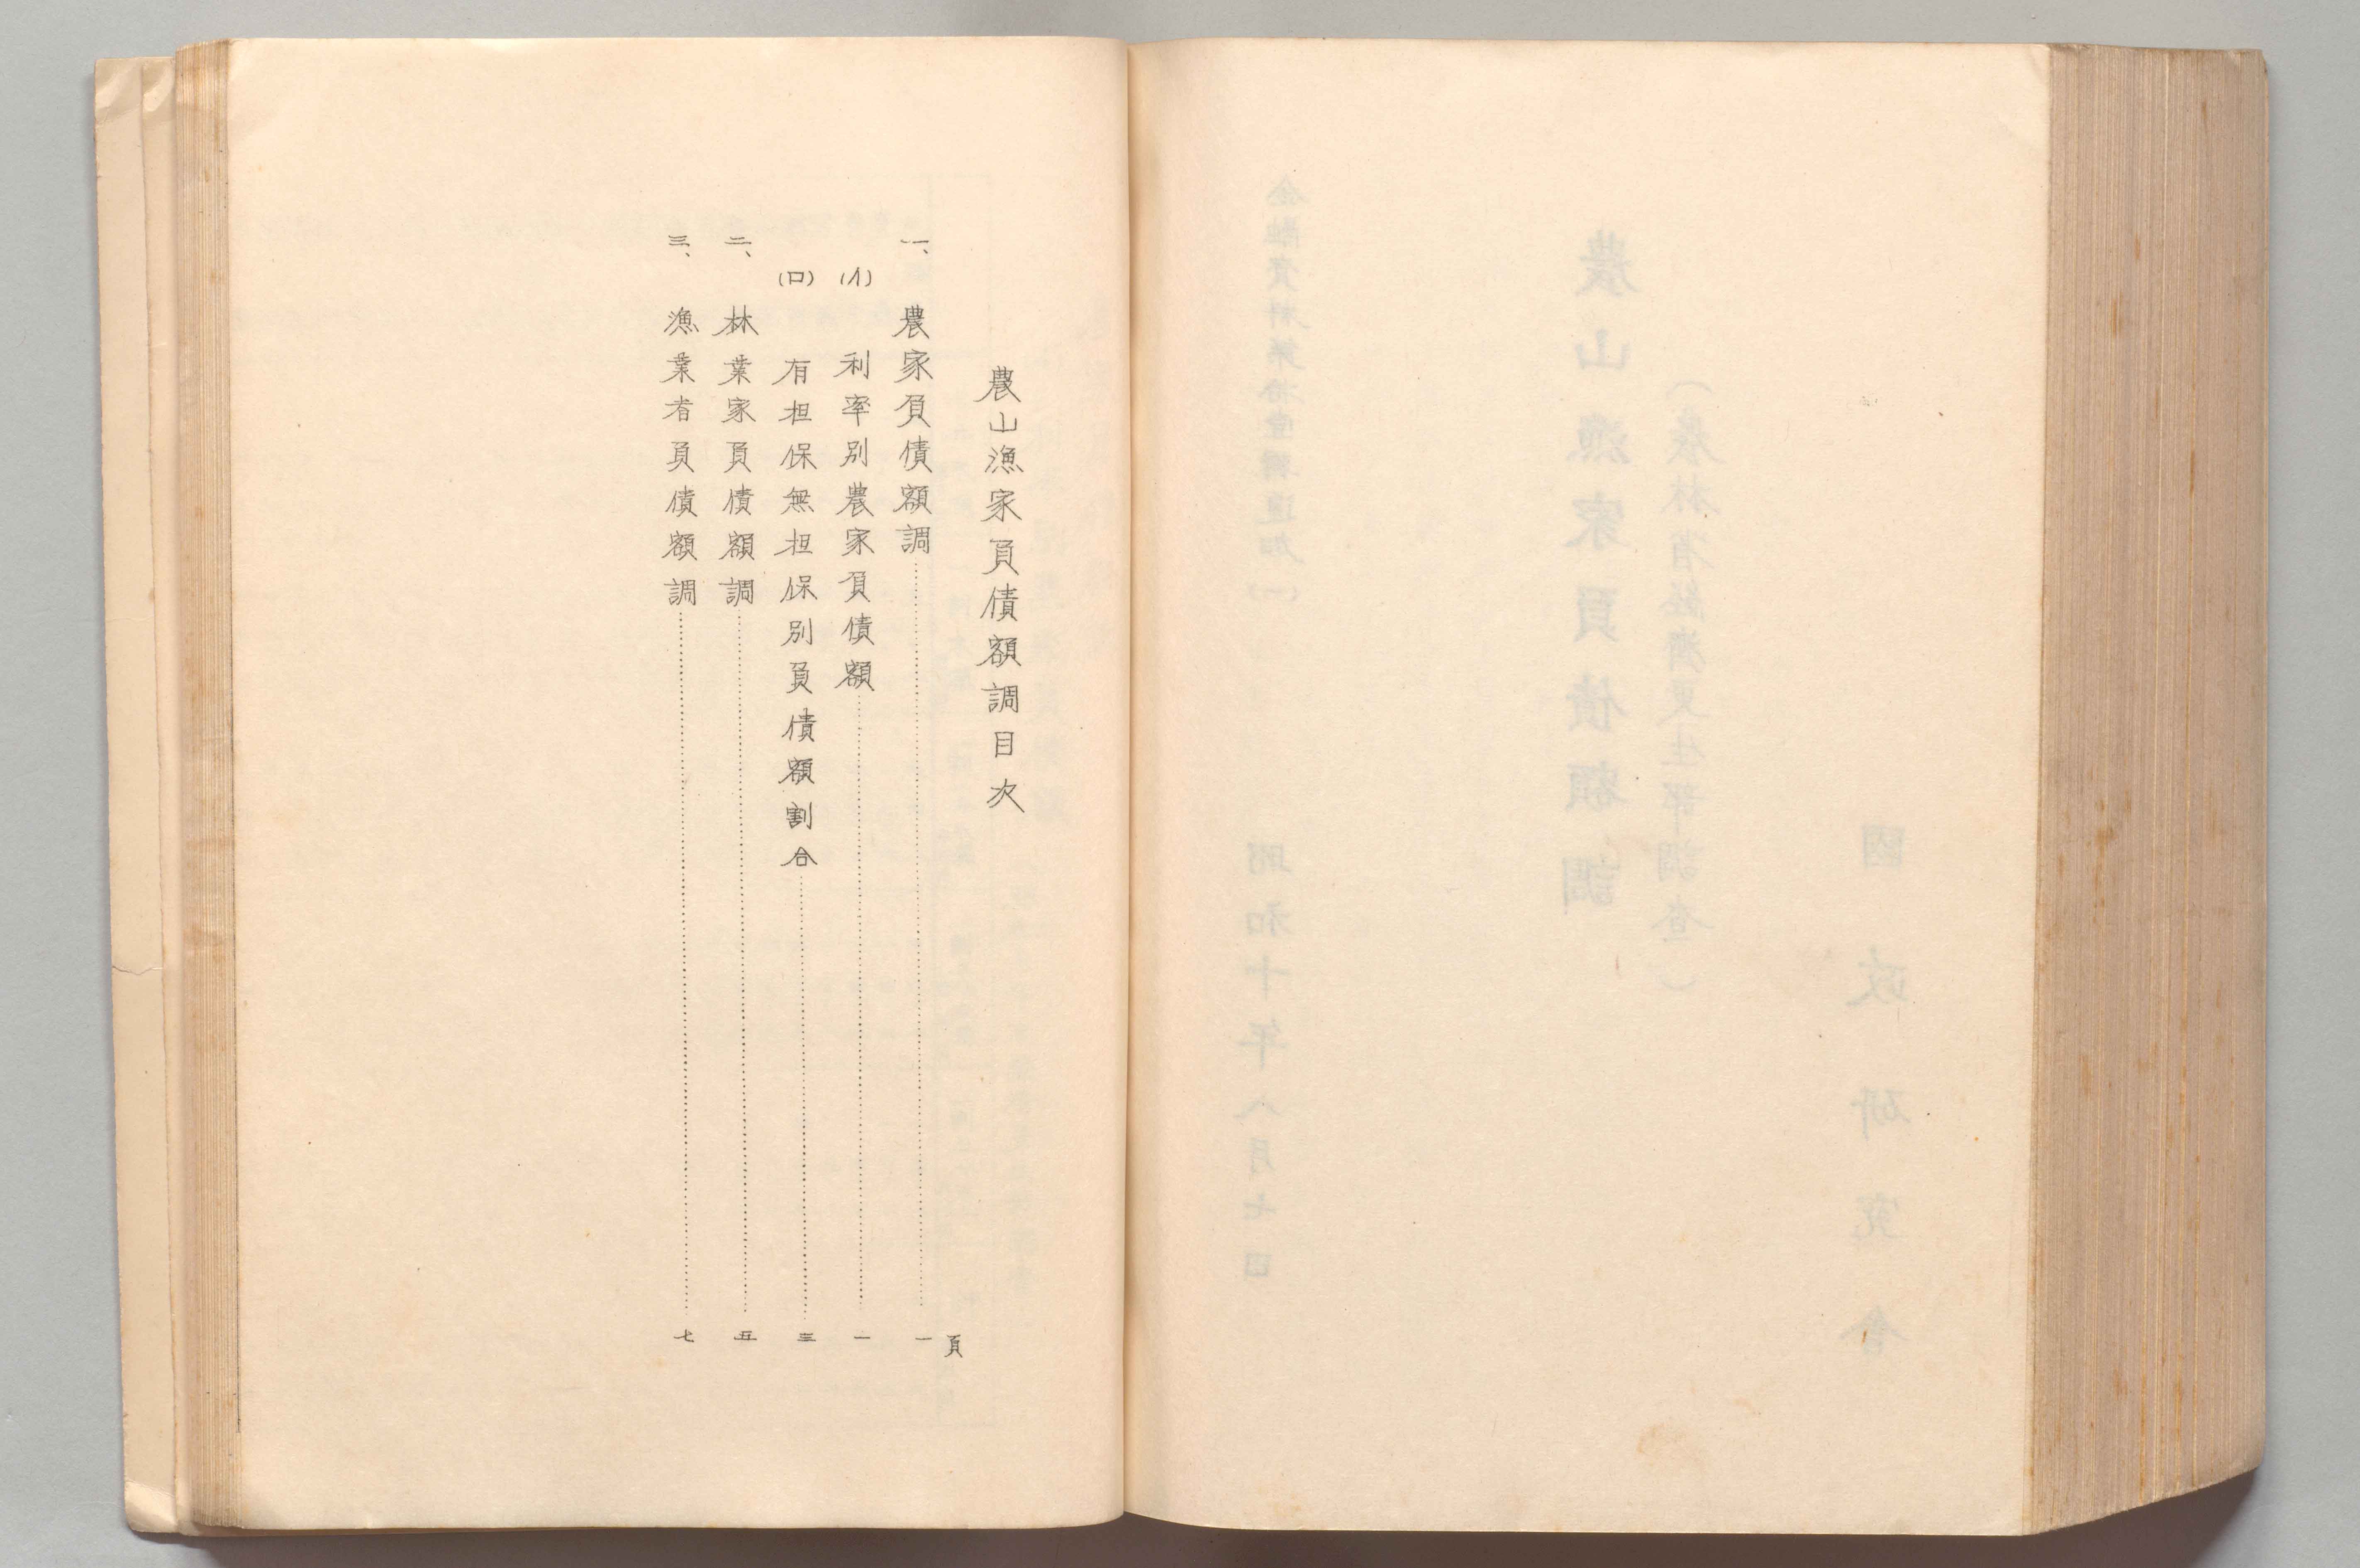 農山漁家負債額調目次
頁
一、農家負債額調……一
(イ)利率別農家負債額……一
(ロ)有担保無担保別負債額割合……三
二、林業家負債額調……五
三、漁業者負債額調……七